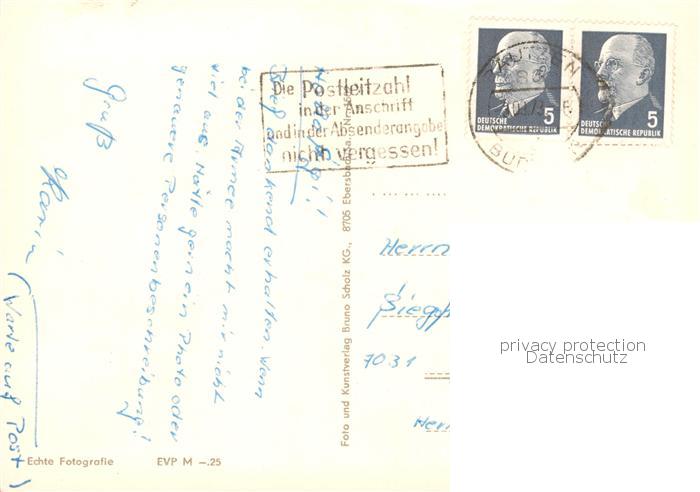 Brief dankend erhalten. Wenn
bei der Armee macht mir nicht
viel aus. Hätte gern ein Photo oder
genauere Personenbeschreibung!
Gruß
Karin
(Warte auf Post!)
Die Postleitzahl
in der Anschrift
und in der Absenderangabe
nicht vergessen!
5
DEUTSCHE
DEMOKRATISCHE REPUBLIK
5
DEUTSCHE
DEMOKRATISCHE REPUBLIK
BAUTZEN
Herrn
7031
Foto und Kunstverlag Bruno Scholz KG., 8705 Ebersbach/Sa.
Echte Fotografie EVP M –.25
privacy protection
Datenschutz